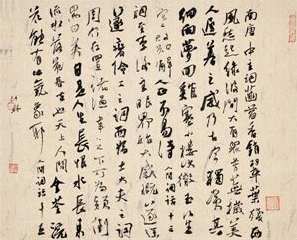 南唐中主詞菡萏香銷翠葉殘西
風愁起綠波間大有眾芳蕪穢美
人遲暮之感乃古今獨賞其
細雨夢回雞塞遠小樓吹徹玉笙
寒故知解人正不易得 人間詞話十三
詞至李後主眼界始大感慨遂深
遂變伶工之詞而為士大夫之詞
周介存置諸溫韋之下可謂顛倒
黑白矣自是人生長恨水長東
流水落花春去也天上人間金荃浣
花能有此氣象耶 人間詞話十五